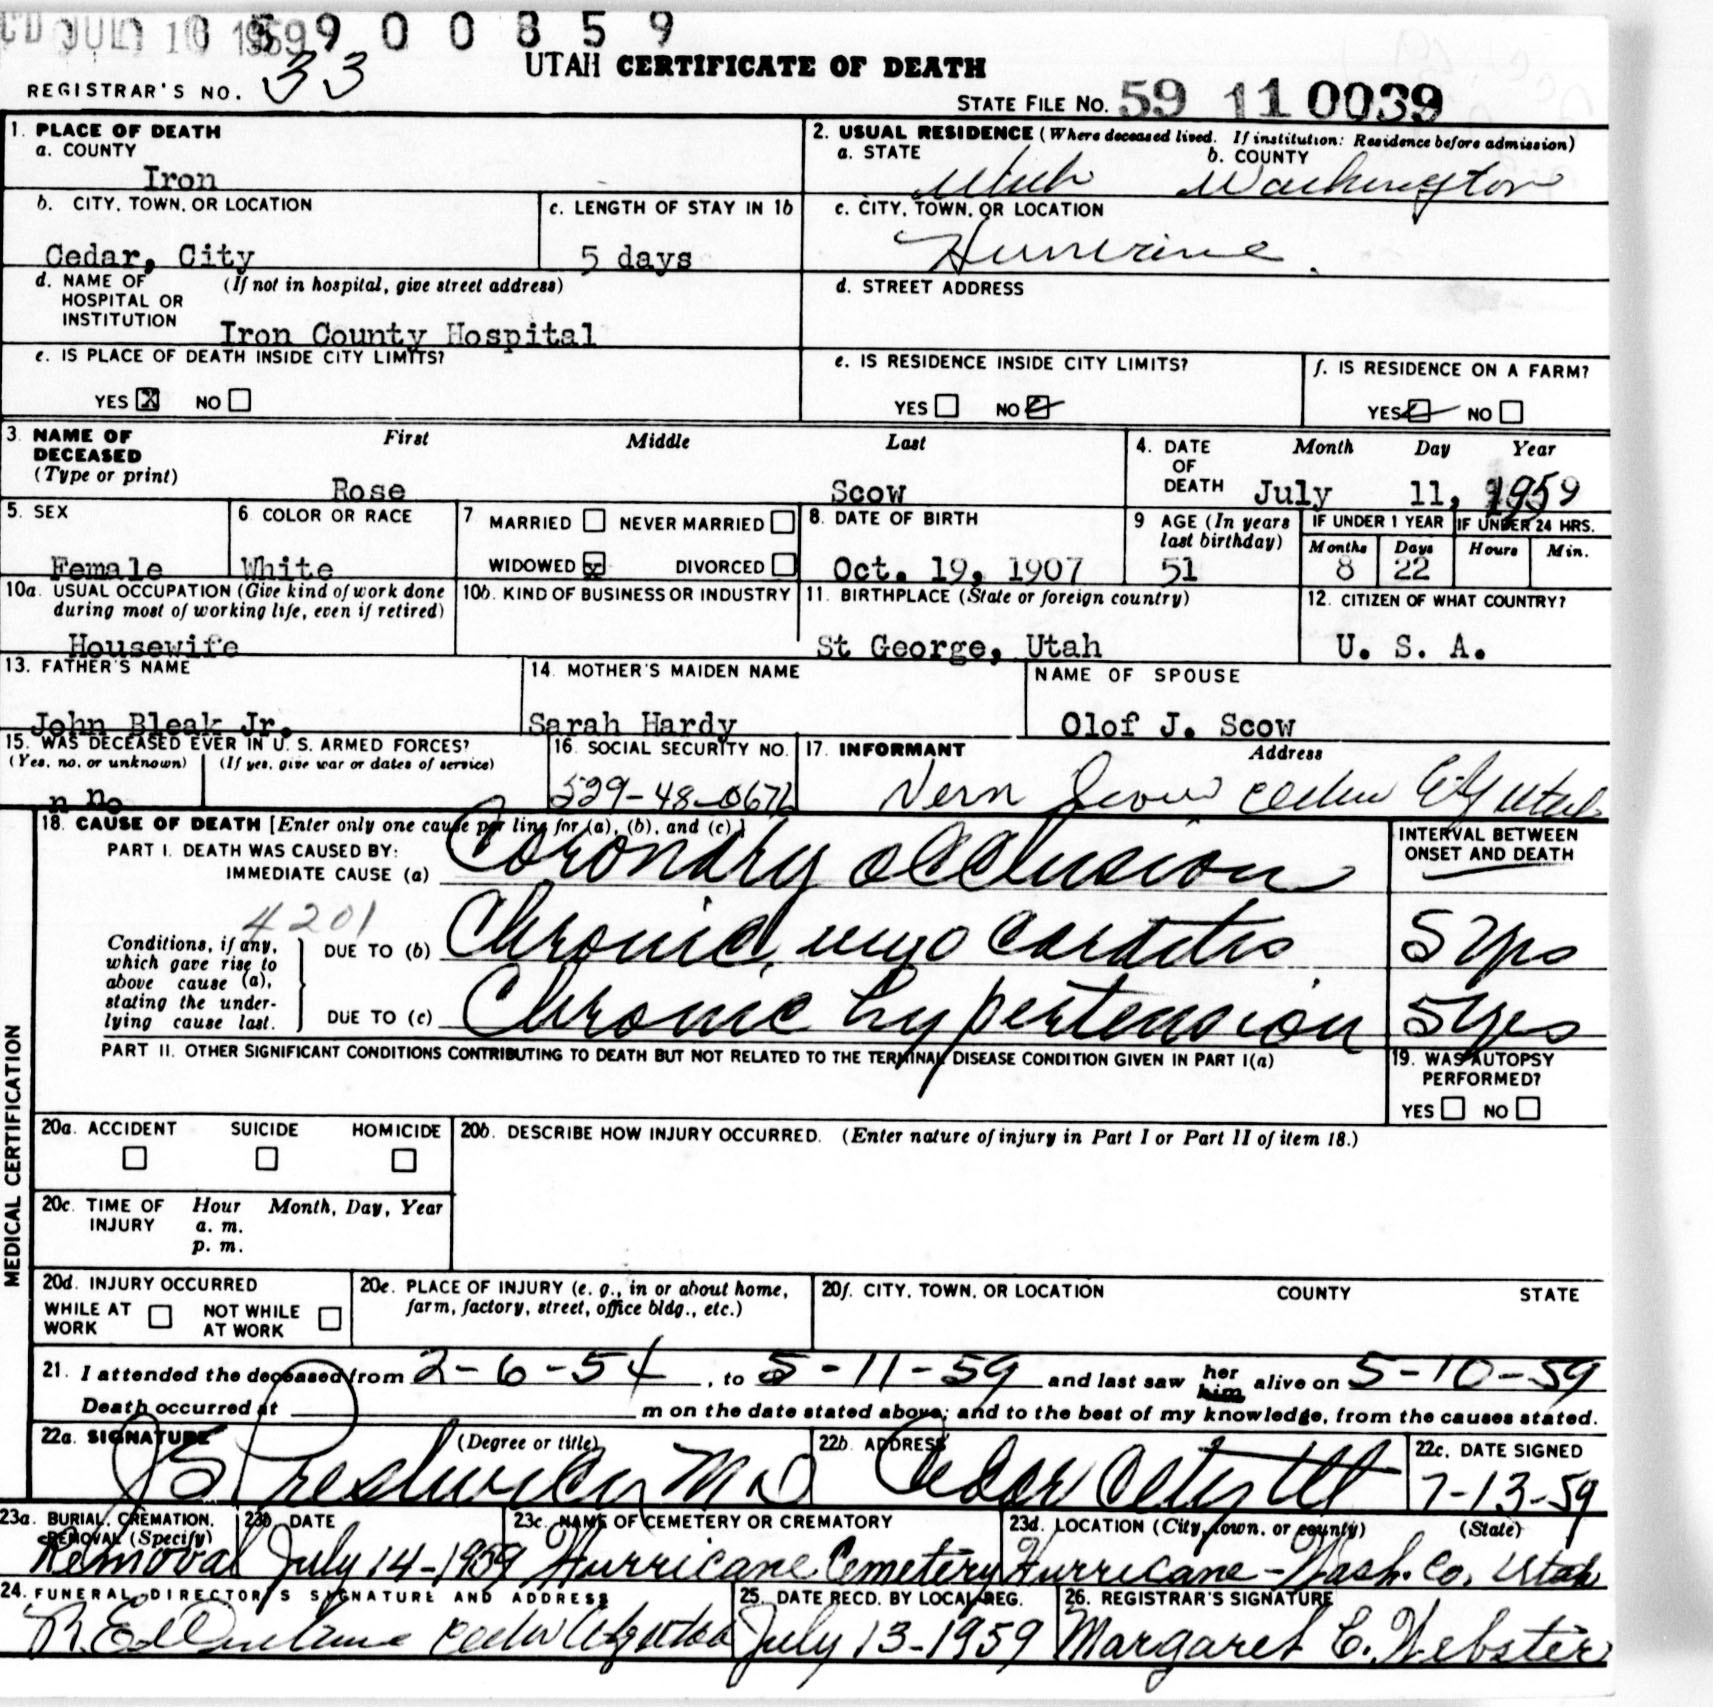 JUL 10 1959 5900859
UTAH CERTIFICATE OF DEATH
REGISTRAR'S NO. 33
STATE FILE NO. 59 11 0039
1. PLACE OF DEATH
a. COUNTY
Iron
2. USUAL RESIDENCE (Where deceased lived. If institution: Residence before admission)
a. STATE b. COUNTY
Utah Washington
b. CITY, TOWN, OR LOCATION
Cedar, City
c. LENGTH OF STAY IN 1b
5 days
c. CITY, TOWN, OR LOCATION
Hurricane
d. NAME OF HOSPITAL OR INSTITUTION (If not in hospital, give street address)
Iron County Hospital
d. STREET ADDRESS
e. IS PLACE OF DEATH INSIDE CITY LIMITS?
YES X NO
e. IS RESIDENCE INSIDE CITY LIMITS?
YES NO
f. IS RESIDENCE ON A FARM?
YES NO
3. NAME OF DECEASED (Type or print)
First Middle Last
Rose Scow
4. DATE OF DEATH Month Day Year
July 11, 1959
5. SEX
Female
6. COLOR OR RACE
White
7 MARRIED NEVER MARRIED
WIDOWED x DIVORCED
8. DATE OF BIRTH
Oct. 19, 1907
9 AGE (In years last birthday)
51
IF UNDER 1 YEAR IF UNDER 24 HRS.
Months Days Hours Min.
8 22
10a. USUAL OCCUPATION (Give kind of work done during most of working life, even if retired)
Housewife
10b. KIND OF BUSINESS OR INDUSTRY
11. BIRTHPLACE (State or foreign country)
St George, Utah
12. CITIZEN OF WHAT COUNTRY?
U. S. A.
13. FATHER'S NAME
John Bleak Jr.
14. MOTHER'S MAIDEN NAME
Sarah Hardy
NAME OF SPOUSE
Olof J. Scow
15. WAS DECEASED EVER IN U. S. ARMED FORCES?
(Yes, no, or unknown) (If yes, give war or dates of service)
n no
16. SOCIAL SECURITY NO.
529-48-0676
17. INFORMANT Address
Vern Scow Cedar City Utah
18. CAUSE OF DEATH [Enter only one cause per line for (a), (b), and (c).]
PART I. DEATH WAS CAUSED BY:
IMMEDIATE CAUSE (a) Coronary occlusion
INTERVAL BETWEEN ONSET AND DEATH
4201
Conditions, if any, which gave rise to above cause (a), stating the underlying cause last.
DUE TO (b) Chronic myocarditis 5 yrs
DUE TO (c) Chronic hypertension 5 yrs
PART II. OTHER SIGNIFICANT CONDITIONS CONTRIBUTING TO DEATH BUT NOT RELATED TO THE TERMINAL DISEASE CONDITION GIVEN IN PART I(a)
19. WAS AUTOPSY PERFORMED?
YES NO
MEDICAL CERTIFICATION
20a. ACCIDENT SUICIDE HOMICIDE
20b. DESCRIBE HOW INJURY OCCURRED. (Enter nature of injury in Part I or Part II of item 18.)
20c. TIME OF INJURY Hour Month, Day, Year
a. m.
p. m.
20d. INJURY OCCURRED
WHILE AT WORK NOT WHILE AT WORK
20e. PLACE OF INJURY (e. g., in or about home, farm, factory, street, office bldg., etc.)
20f. CITY, TOWN, OR LOCATION COUNTY STATE
21. I attended the deceased from 2-6-54, to 5-11-59 and last saw her him alive on 5-10-59
Death occurred at m on the date stated above; and to the best of my knowledge, from the causes stated.
22a. SIGNATURE (Degree or title)
J S Prestwich MD
22b. ADDRESS
Cedar City Ut
22c. DATE SIGNED
7-13-59
23a. BURIAL, CREMATION, REMOVAL (Specify)
Removal
23b. DATE
July 14-1959
23c. NAME OF CEMETERY OR CREMATORY
Hurricane Cemetery
23d. LOCATION (City, town, or county) (State)
Hurricane-Wash. Co. Utah
24. FUNERAL DIRECTOR'S SIGNATURE AND ADDRESS
Cedar City Utah
25. DATE RECD. BY LOCAL REG.
July 13-1959
26. REGISTRAR'S SIGNATURE
Margaret C. Webster